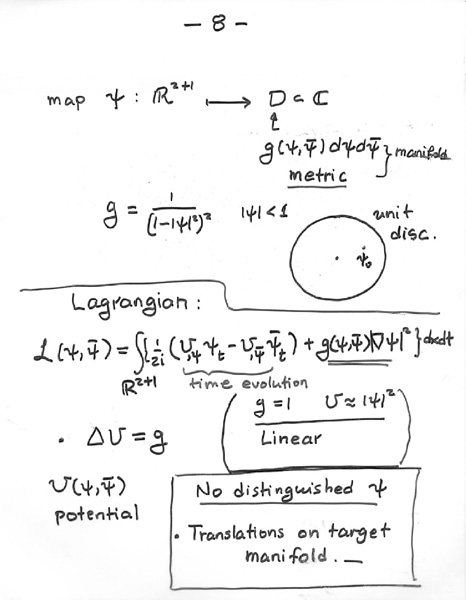 - 8 -
map ψ : ℝ²⁺¹ ⟼ D ⊂ ℂ
g(ψ,ψ̄) dψdψ̄ } manifold
metric
g = 1/(1-|ψ|²)² |ψ| < 1
unit
disc.
ψ₀
Lagrangian :
ℒ(ψ,ψ̄) = ∫{ 1/2i (U,ψ ψt - U,ψ̄ ψ̄t) + g(ψ,ψ̄)|∇ψ|² } dxdt
ℝ²⁺¹
time evolution
g = 1 U ≈ |ψ|²
Linear
• ΔU = g
U(ψ,ψ̄)
potential
No distinguished ψ
• Translations on target
manifold. —